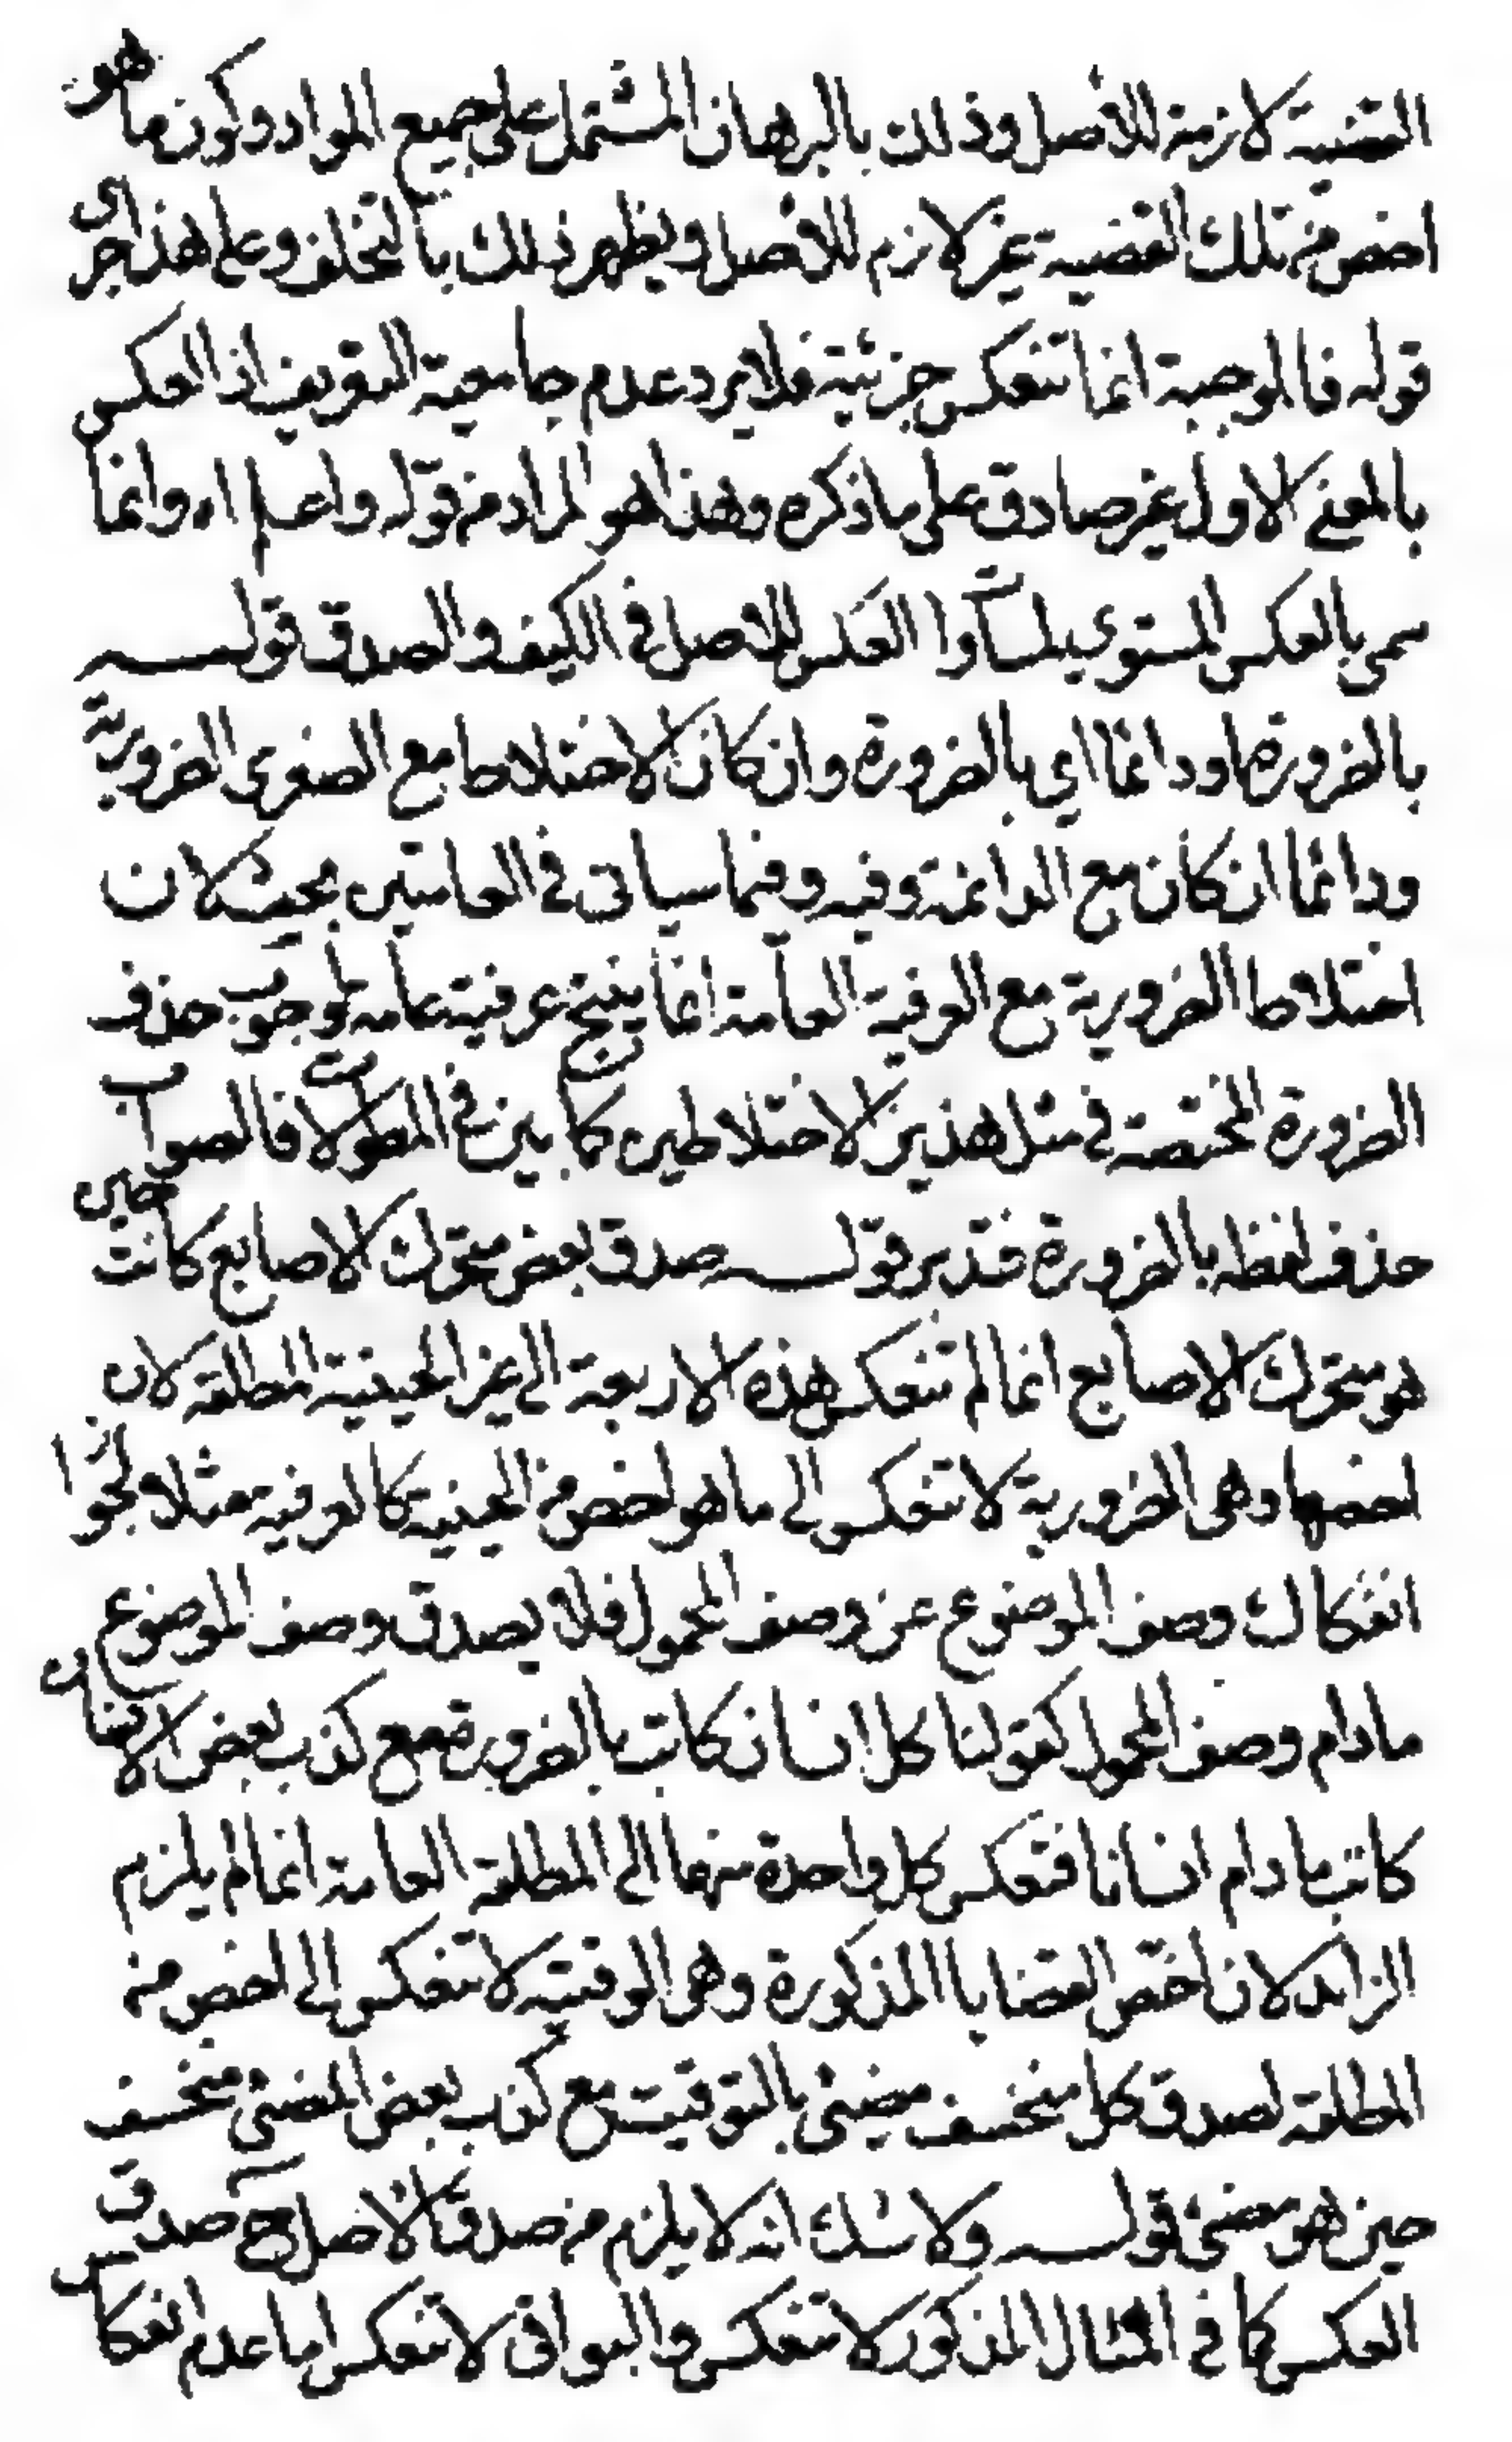 القضية لازمة للأصل وذلك بالبرهان المشتمل على جميع المواد وكون ما هو
اخص من تلك القضية غير لازم للأصل ويظهر ذلك بالتخلف وعلى هذا جرى
قوله فالموجبة انما تنعكس جزئية فلا يرد عدم جامعية التعريف اذ العكس
بالمعنى الاول غير صادق على ما ذكره وهذا هو المراد من قوله واعلم اه وانما
سمى بالعكس المستوي لمساوات العكس للاصل في الكيف والصدق قوله
بالضرورة او دائما اي بالضرورة وان كان الاختلاط مع الصغرى الضرورية
ودائما ان كان مع الدائمة وفيه وفيما سياتي في العامتين بحث لان
اختلاط الضرورية مع العرفية العامة انما ينتج عرفية عامة لوجوب حذف
الضرورة المختصة في مثل هذين الاختلاطين كما بين في المطولات فالصواب
حذف لفظه بالضرورة فتدبر قوله صدق بعض متحرك الاصابع كاتب حين
هو متحرك الاصابع انما لم تنعكس هذه الاربعة الى غير الحينية المطلقة لان
اخصها وهي الضرورية لا تنعكس الى ما هو اخص من الحينية كالعرفية مثلا لجواز
انفكاك وصف الموضوع عن وصف المحمول فلا يصدق وصف الموضوع
مادام وصف المحمول كقولنا كل انسان كاتب بالضرورة مع كذب بعض الانسان
كاتب مادام انسانا فتعكس كل واحدة منهما الى المطلقة العامة انما لم يلزم
الزائد لان اخص القضايا المذكورة وهي الوقتية لا تنعكس الى اخص من
المطلقة لصدق كل منخسف مضيئ بالتوقيت مع كذب بعض المضيئ منخسف
حين هو مضيئ قوله ولا شك انه لا يلزم من صدق الاصل ح صدق
العكس كما في المثال المذكور لا تنعكس والبواقى لا تنعكس اما عدم انعكاس